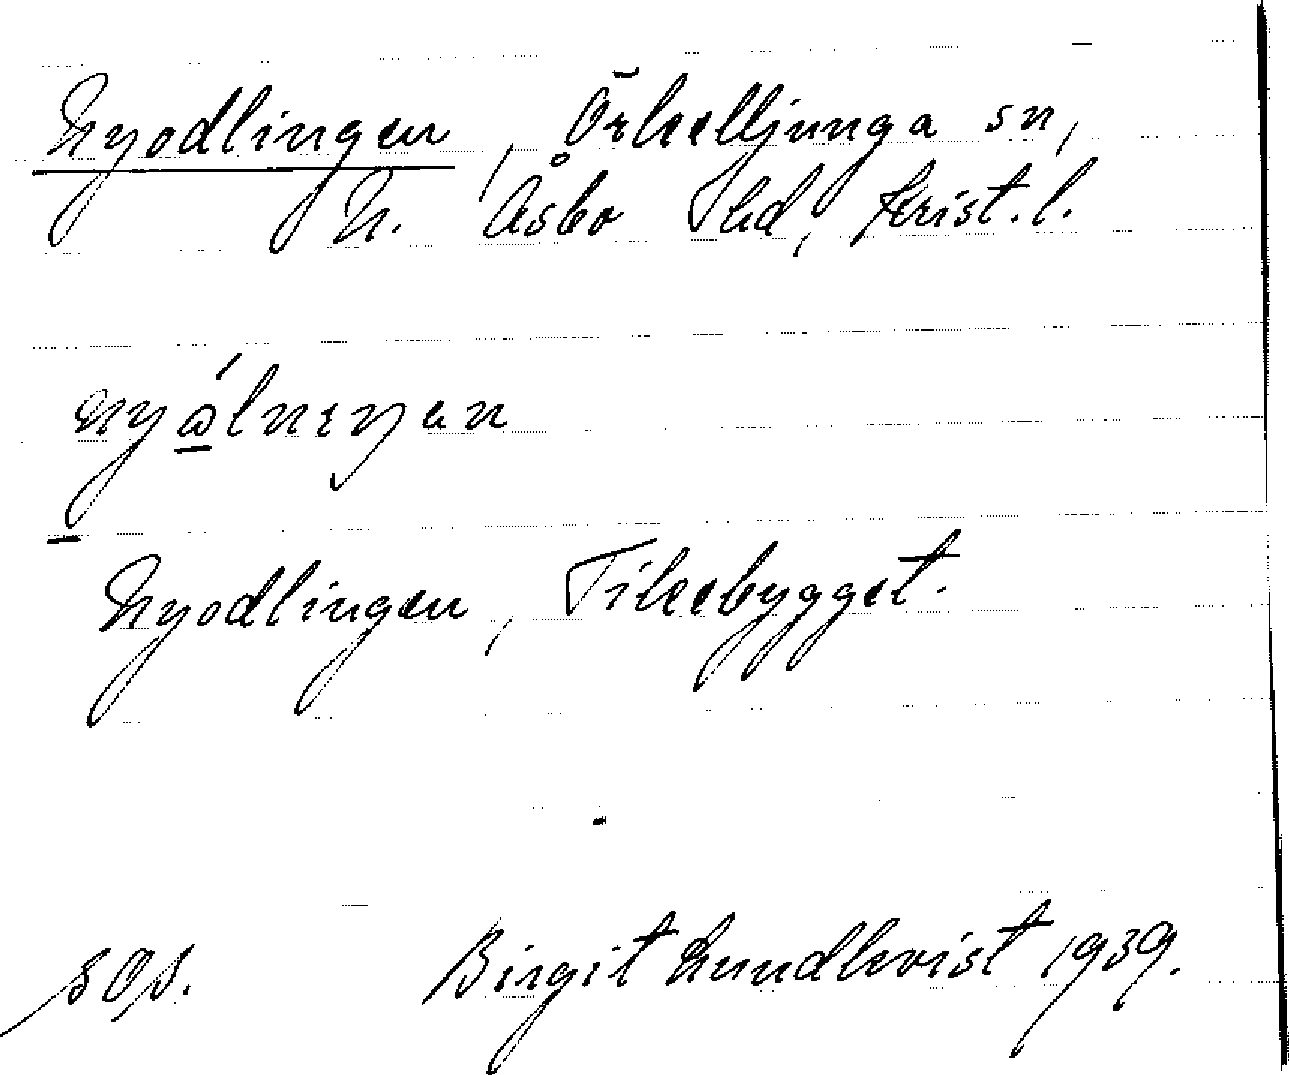 Nyodlingen, Örkelljunga sn,
N. Åsbo hd, Krist. l.
Nyodlingen, Fikebygget.
Birgit Lundkvist 1939.